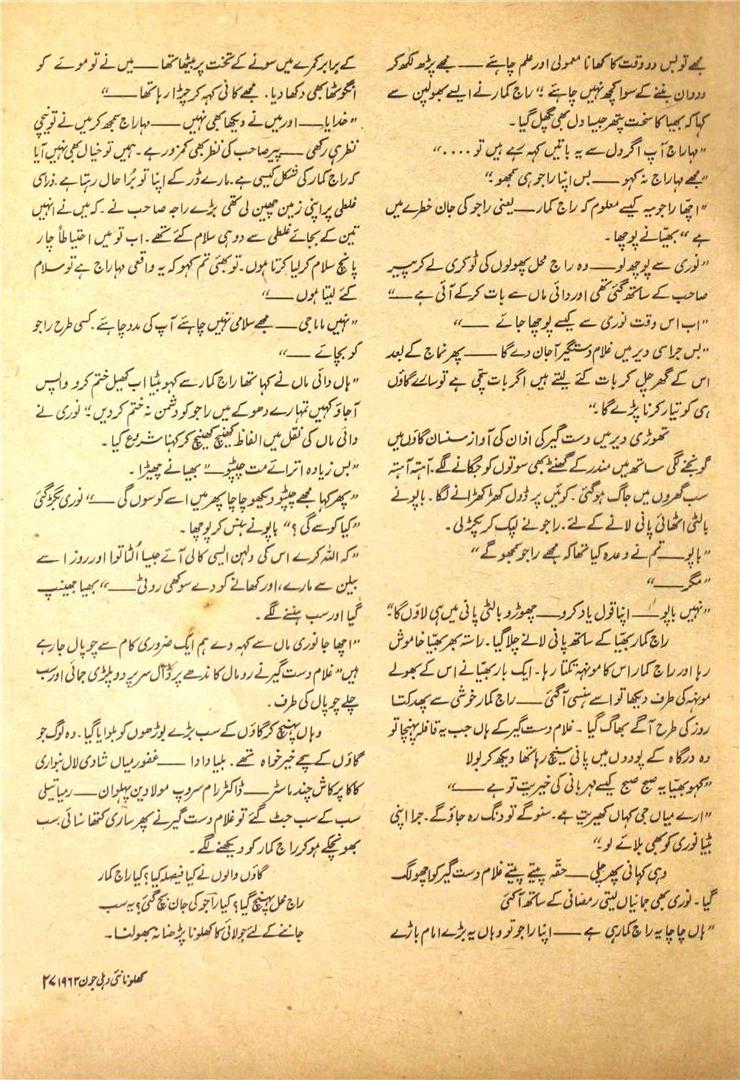 مجھے تو بس دو وقت کا کھانا معمولی اور علم چاہئے —— مجھے پڑھ لکھ کر
ودوان بننے کے سوا کچھ نہیں چاہئے ؛" راج کمار نے ایسے بھولپن سے
کہا کہ بھیا کا سخت پتھر جیسا دل بھی پگھل گیا۔
"مہاراج آپ اگر دل سے یہ باتیں کہہ رہے ہیں تو ۔۔۔۔"
"مجھے مہاراج نہ کہو —— بس اپنا راجو ہی سمجھو ؛"
"اچھا راجو یہ کیسے معلوم کہ راج کمار —— یعنی راجو کی جان خطرے میں
ہے" بھیّا نے پوچھا۔
"نوری سے پوچھ لو —— وہ راج محل پھولوں کی ٹوکری لے کر پیر
صاحب کے ساتھ گئی تھی اور دائی ماں سے بات کر کے آئی ہے ——"
"اب اس وقت نوری سے کیسے پوچھا جائے ——"
"بس جرا سی دیر میں غلام دستگیر آجان دے گا —— پھر نماج کے بعد
اس کے گھر چل کر بات کئے لیتے ہیں اگر بات سچّی ہے تو سارے گاؤں
ہی کو تیار کرنا پڑے گا۔"
تھوڑی دیر میں دست گیر کی اذان کی آواز سنسان گاؤں میں
گونجنے لگی ساتھ ہیں مندر کے گھنٹے بھی سوتوں کو جگانے لگے۔ آہستہ آہستہ
سب گھروں میں جاگ ہوگئی۔ کوئیں پر ڈول کھڑکھڑانے لگا۔ باپو نے
بالٹی اٹھائی پانی لانے کے لئے۔ راجو نے لپک کر پکڑ لی۔
"باپو —— تم نے وعدہ کیا تھا کہ مجھے راجو سمجھو گے"
"مگر ——"
"نہیں باپو —— اپنا قول یاد کرو —— چھوڑو بالٹی پانی میں ہی لاؤں گا"
راج کمار بھیّا کے ساتھ پانی لانے چلا گیا۔ راستہ بھر بھیّا خاموش
رہا اور راج کمار اس کا مونہہ تکتا رہا۔ ایک بار بھیّا نے اس کے بھولے
مونہہ کی طرف دیکھا تو اسے ہنسی آگئی —— راج کمار خوشی سے پھدکتا
روز کی طرح آگے بھاگ گیا۔ غلام دست گیر کے ہاں جب یہ قافلہ پہنچا تو
وہ درگاہ کے پودوں میں پانی سینچ رہا تھا دیکھ کر بولا
"کہو بھیّا یہ صبح صبح کیسے مہربانی کی خیریت تو ہے ——"
"ارے میاں جی کہاں کھیریت ہے۔ سنو گے تو دنگ رہ جاؤ گے۔ جرا اپنی
بٹیا نوری کو بھی بلائے لو ؛"
وہی کہانی پھر چلی —— حقّہ پیتے پیتے غلام دست گیر کو اچھو لگ
گیا۔ نوری بھی جمائیاں لیتی رمضانی کے ساتھ آگئی
"ہاں چاچا یہ راج کمار ہی ہے —— اپنا راجو تو وہاں یہ بڑے امام باڑے
کے برابر کمرے میں سونے کے تخت پر بیٹھا تھا —— میں نے تو موئے کو
انگوٹھا بھی دکھا دیا۔ مجھے کانی کہہ کر چڑا رہا تھا ——"
"خدایا —— اور میں نے دیکھا بھی نہیں —— مہاراج سمجھ کر میں نے تو نیچی
نظر ہی رکھی —— پیر صاحب کی نظر بھی کمزور ہے۔ ہمیں تو خیال بھی نہیں آیا
کہ راج کمار کی شکل کیسی ہے۔ مارے ڈر کے اپنا تو برُا حال رہتا ہے۔ ذرا سی
غلطی پر اپنی زمین چھین لی تھی بڑے راجہ صاحب نے۔ کہ میں نے انہیں
تین کے بجائے غلطی سے دو ہی سلام کئے تھے۔ اب تو میں احتیاطاً چار
پانچ سلام کر لیا کرتا ہوں۔ تو بھئی تم کہو کہ یہ واقعی مہاراج ہے تو سلام
کئے لیتا ہوں ——"
"نہیں ماما جی —— مجھے سلامی نہیں چاہئے آپ کی مدد چاہئے۔ کسی طرح راجو
کو بچائے ——"
"ہاں دائی ماں نے کہا تھا راج کمار سے کہو بیٹا اب کھیل ختم کرو واپس
آجاؤ کہیں تمہارے دھوکے میں راجو کو دشمن نہ ختم کردیں ؛" نوری نے
دائی ماں کی نقل میں الفاظ کھینچ کھینچ کر کہنا شروع کیا۔
"بس زیادہ اترائے مت چپٹو ——" بھیا نے چھیڑا۔
"پھر کہا مجھے چپٹو دیکھو چاچا پھر میں اسے کوسوں گی ——" نوری بگڑ گئی
"کیا کوسے گی؟" باپو نے ہنس کر پوچھا۔
"کہ اللہ کرے اس کی دلہن ایسی کالی آئے جیسا اُلٹا توا اور روز اسے
بیلن سے مارے، اور کھانے کو دے سوکھی روٹی ——" بھیا جھینپ
گیا اور سب ہنسنے لگے۔
"اچھا جا نوری ماں سے کہہ دے ہم ایک ضروری کام سے چوپال جا رہے
ہیں" غلام دست گیر نے رومال کاندھے پر ڈال سر پر دوپلڑی جمائی اور سب
چلے چوپال کی طرف۔
وہاں پہنچ کر گاؤں کے سب بڑے بوڑھوں کو بلوایا گیا۔ وہ لوگ جو
گاؤں کے سچے خیر خواہ تھے۔ بلیا دادا —— غفور میاں شادی لال نبواری
کاکا پرکاش چندر ماسٹر —— ڈاکٹر رام سروپ مولا دین پہلوان —— رمیا تیلی
سب کے سب جٹ گئے تو غلام دست گیر نے پھر ساری کتھا سنائی۔ سب
بھونچکے ہو کر راج کمار کو دیکھنے لگے۔
گاؤں والوں نے کیا فیصلہ کیا؟ کیا راج کمار
راج محل پہنچ گیا؟ کیا راجو کی جان بچ گئی؟ یہ سب
جاننے کے لئے جولائی کا کھلونا پڑھنا نہ بھولنا۔
کھلونا نئی دہلی جون ۱۹۶۳ ۲۷